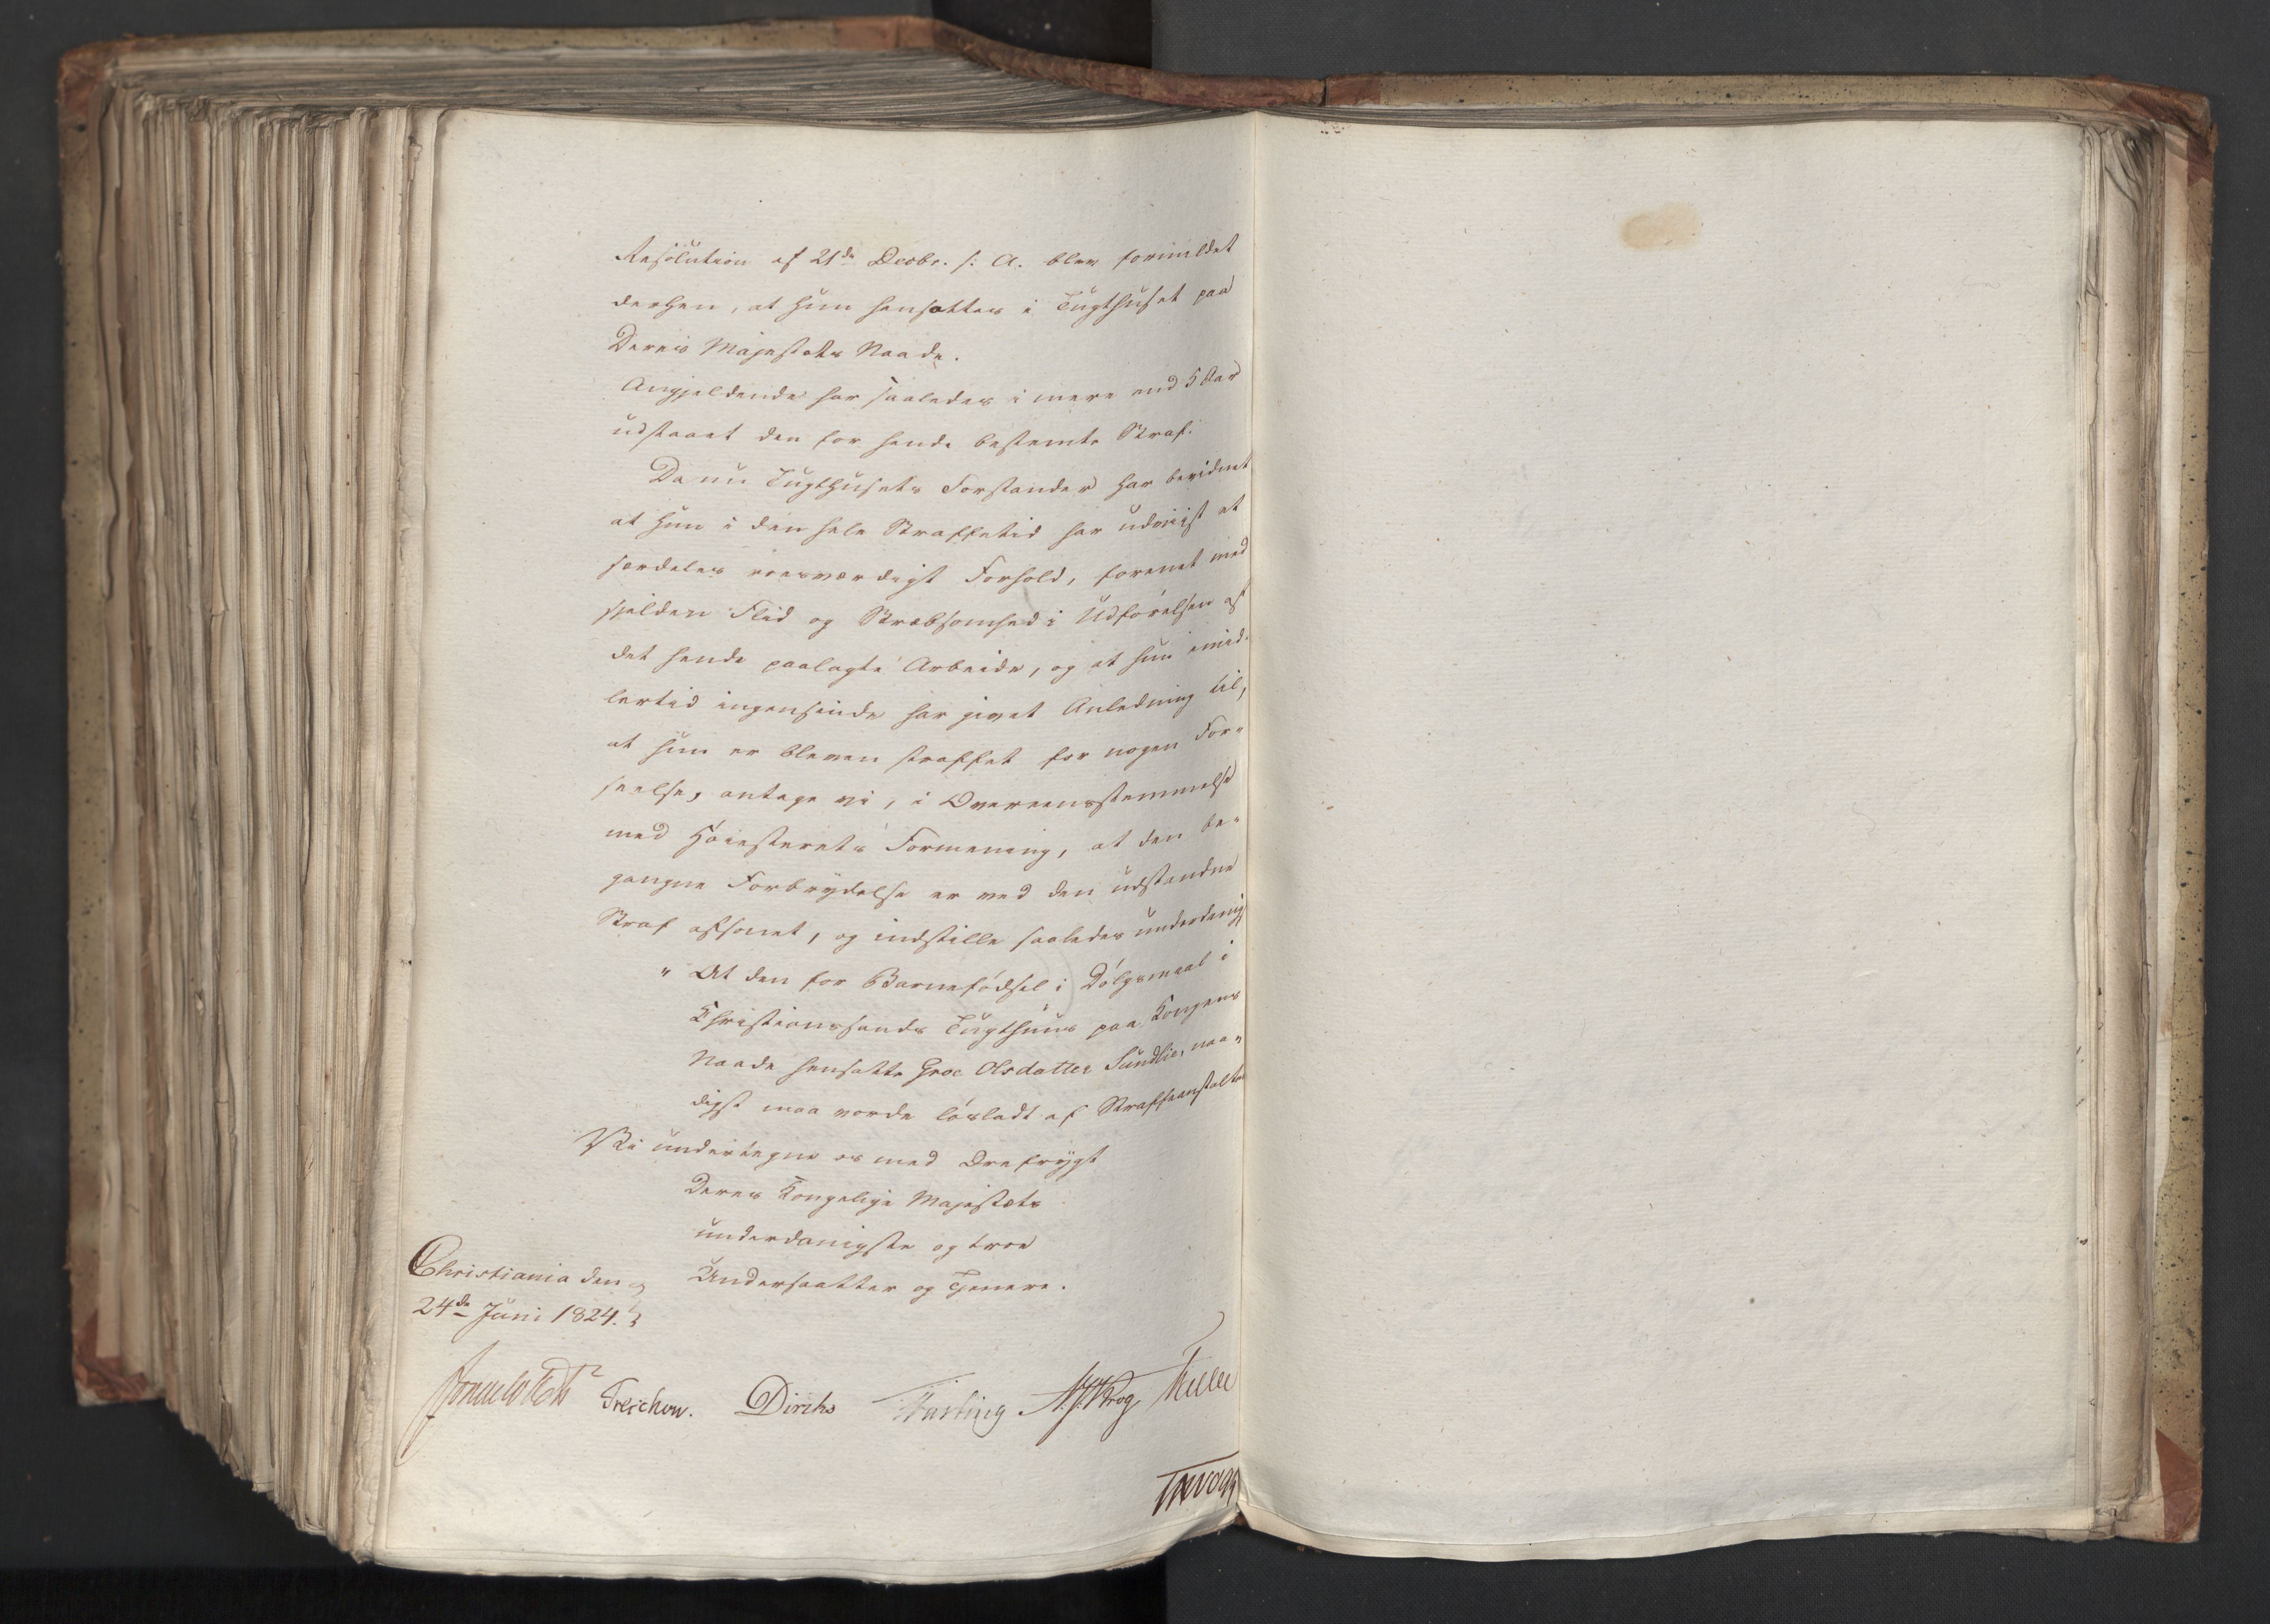 Resolution af 21de Decbr. s: A. blev formildet
derhen, at hun hensattes i Tugthuset paa
Deres Majestæts Naade.
Angjeldende har saaledes i mere end 5 Aar
udstaaet den for hende bestemte Straf.
Da nu Tugthusets Forstander har bevidnet
at hun i den hele Straffetid har udviist et
særdeles roesværdigt Forhold, forenet med
sjelden Flid og Stræbsomhed i Udførelsen af
det hende paalagte Arbeide, og at hun imid-
lertid ingensinde har givet Anledning til,
at hun er bleven straffet for nogen For-
seelse, antage vi, i Overeensstemmelse
med Høiesterets Formening, at den be-
gangne Forbrydelse er ved den udstandne
Straf afsonet, og indstille saaledes underdanigst:
" At den for Barnefødsel i Dølgsmaal i
Christianssands Tugthuus paa Kongens
Naade hensatte Groe Olsdatter Sundlie, naa-
digst maa vorde løsladt af Straffeanstalten
Vi undertegne os med Ærefrygt
Deres Kongelige Majestæts
underdanigste og troe
Undersaatter og Tjenere.
Christiania den
24de Juni 1824.
Sommerfeldt Treschow. Diriks Fasting Krog